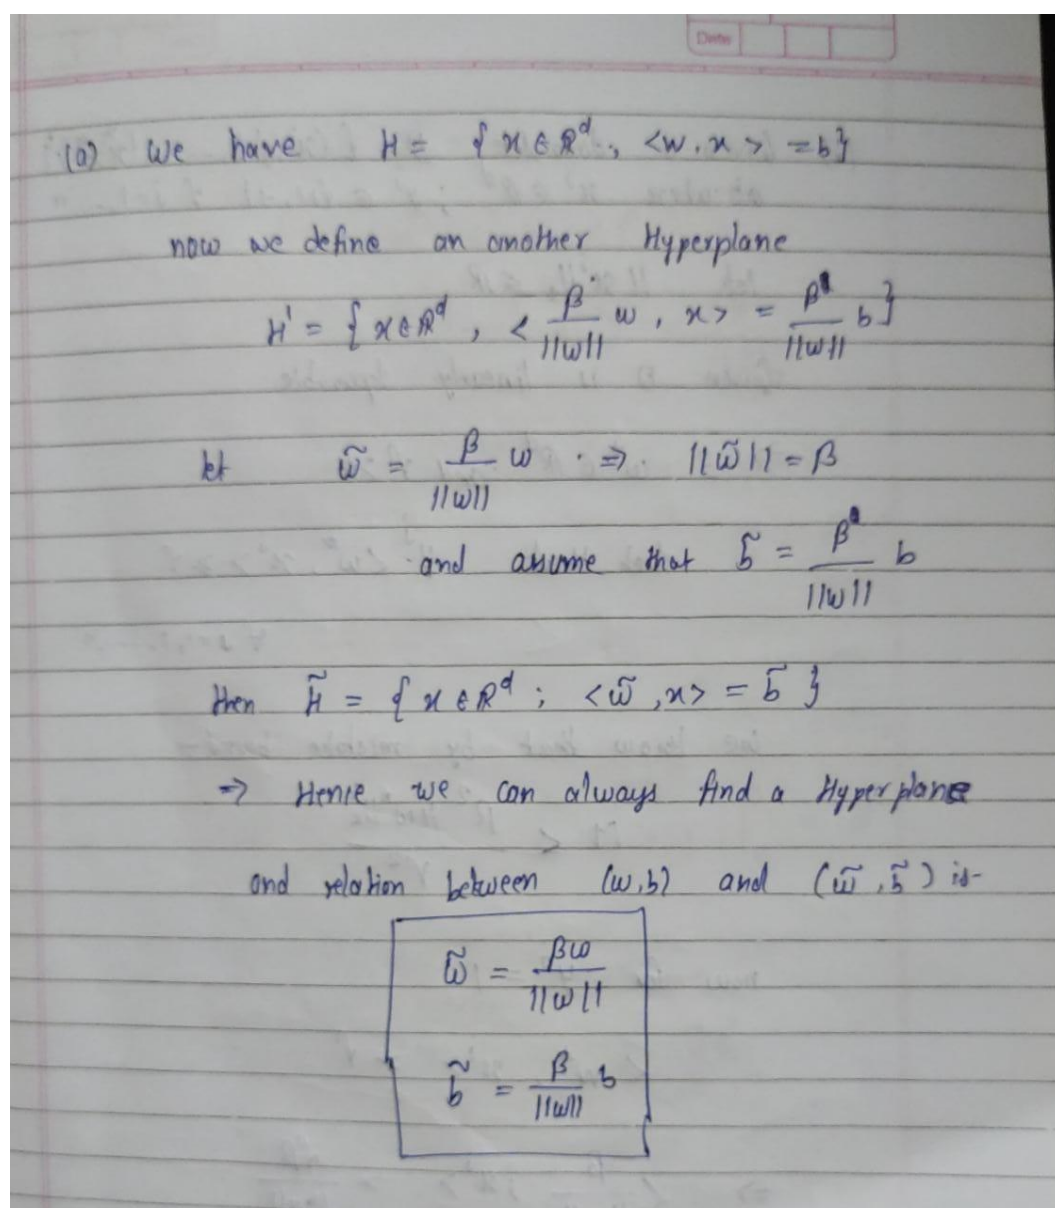 Date
(a) We have H = { x ∈ ℝ^d, <w, x> = b}
now we define an another Hyperplane
H' = { x ∈ ℝ^d, < β/||w|| w, x> = β/||w|| b}
let w̃ = β/||w|| w ⇒ ||w̃|| = β
and assume that b̃ = β/||w|| b
then H̃ = { x ∈ ℝ^d ; <w̃, x> = b̃ }
⇒ Hence we can always find a Hyperplane
and relation between (w,b) and (w̃, b̃) is-
w̃ = βw/||w||
b̃ = β/||w|| b